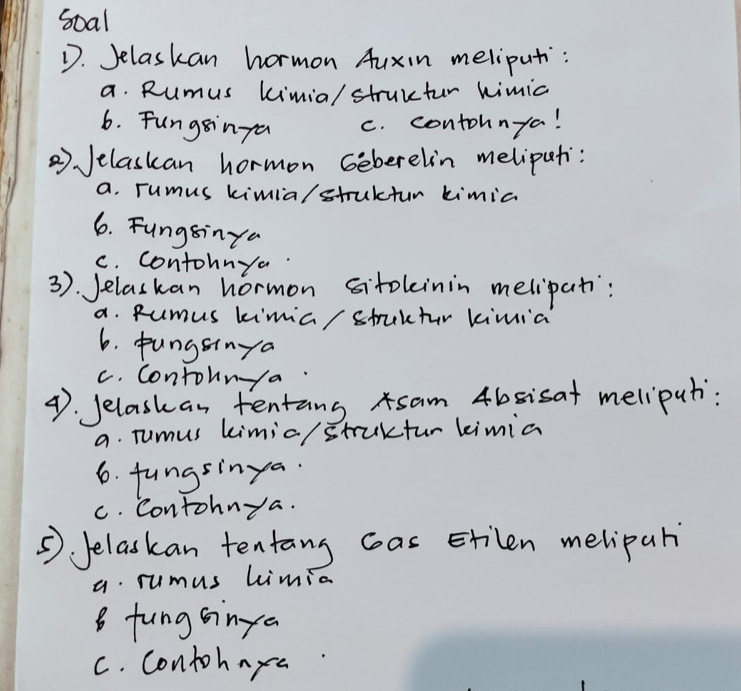 Soal
1). Jelaskan hormon Auxin meliputi :
a. Rumus kimia/struktur kimia
b. Fungsinya c. contohnya!
2). Jelaskan hormon Geberelin meliputi :
a. rumus kimia/struktur kimia
b. Fungsinya
c. Contohnya.
3). Jelaskan hormon sitokinin meliputi :
a. Rumus kimia / struktur kimia
b. fungsinya
c. Contohnya.
4). Jelaskan tentang Asam Absisat meliputi :
a. rumus kimia/struktur kimia
b. fungsinya.
c. Contohnya.
5). Jelaskan tentang Gas Etilen meliputi
a. rumus kimia
b fungsinya
c. Contohnya.